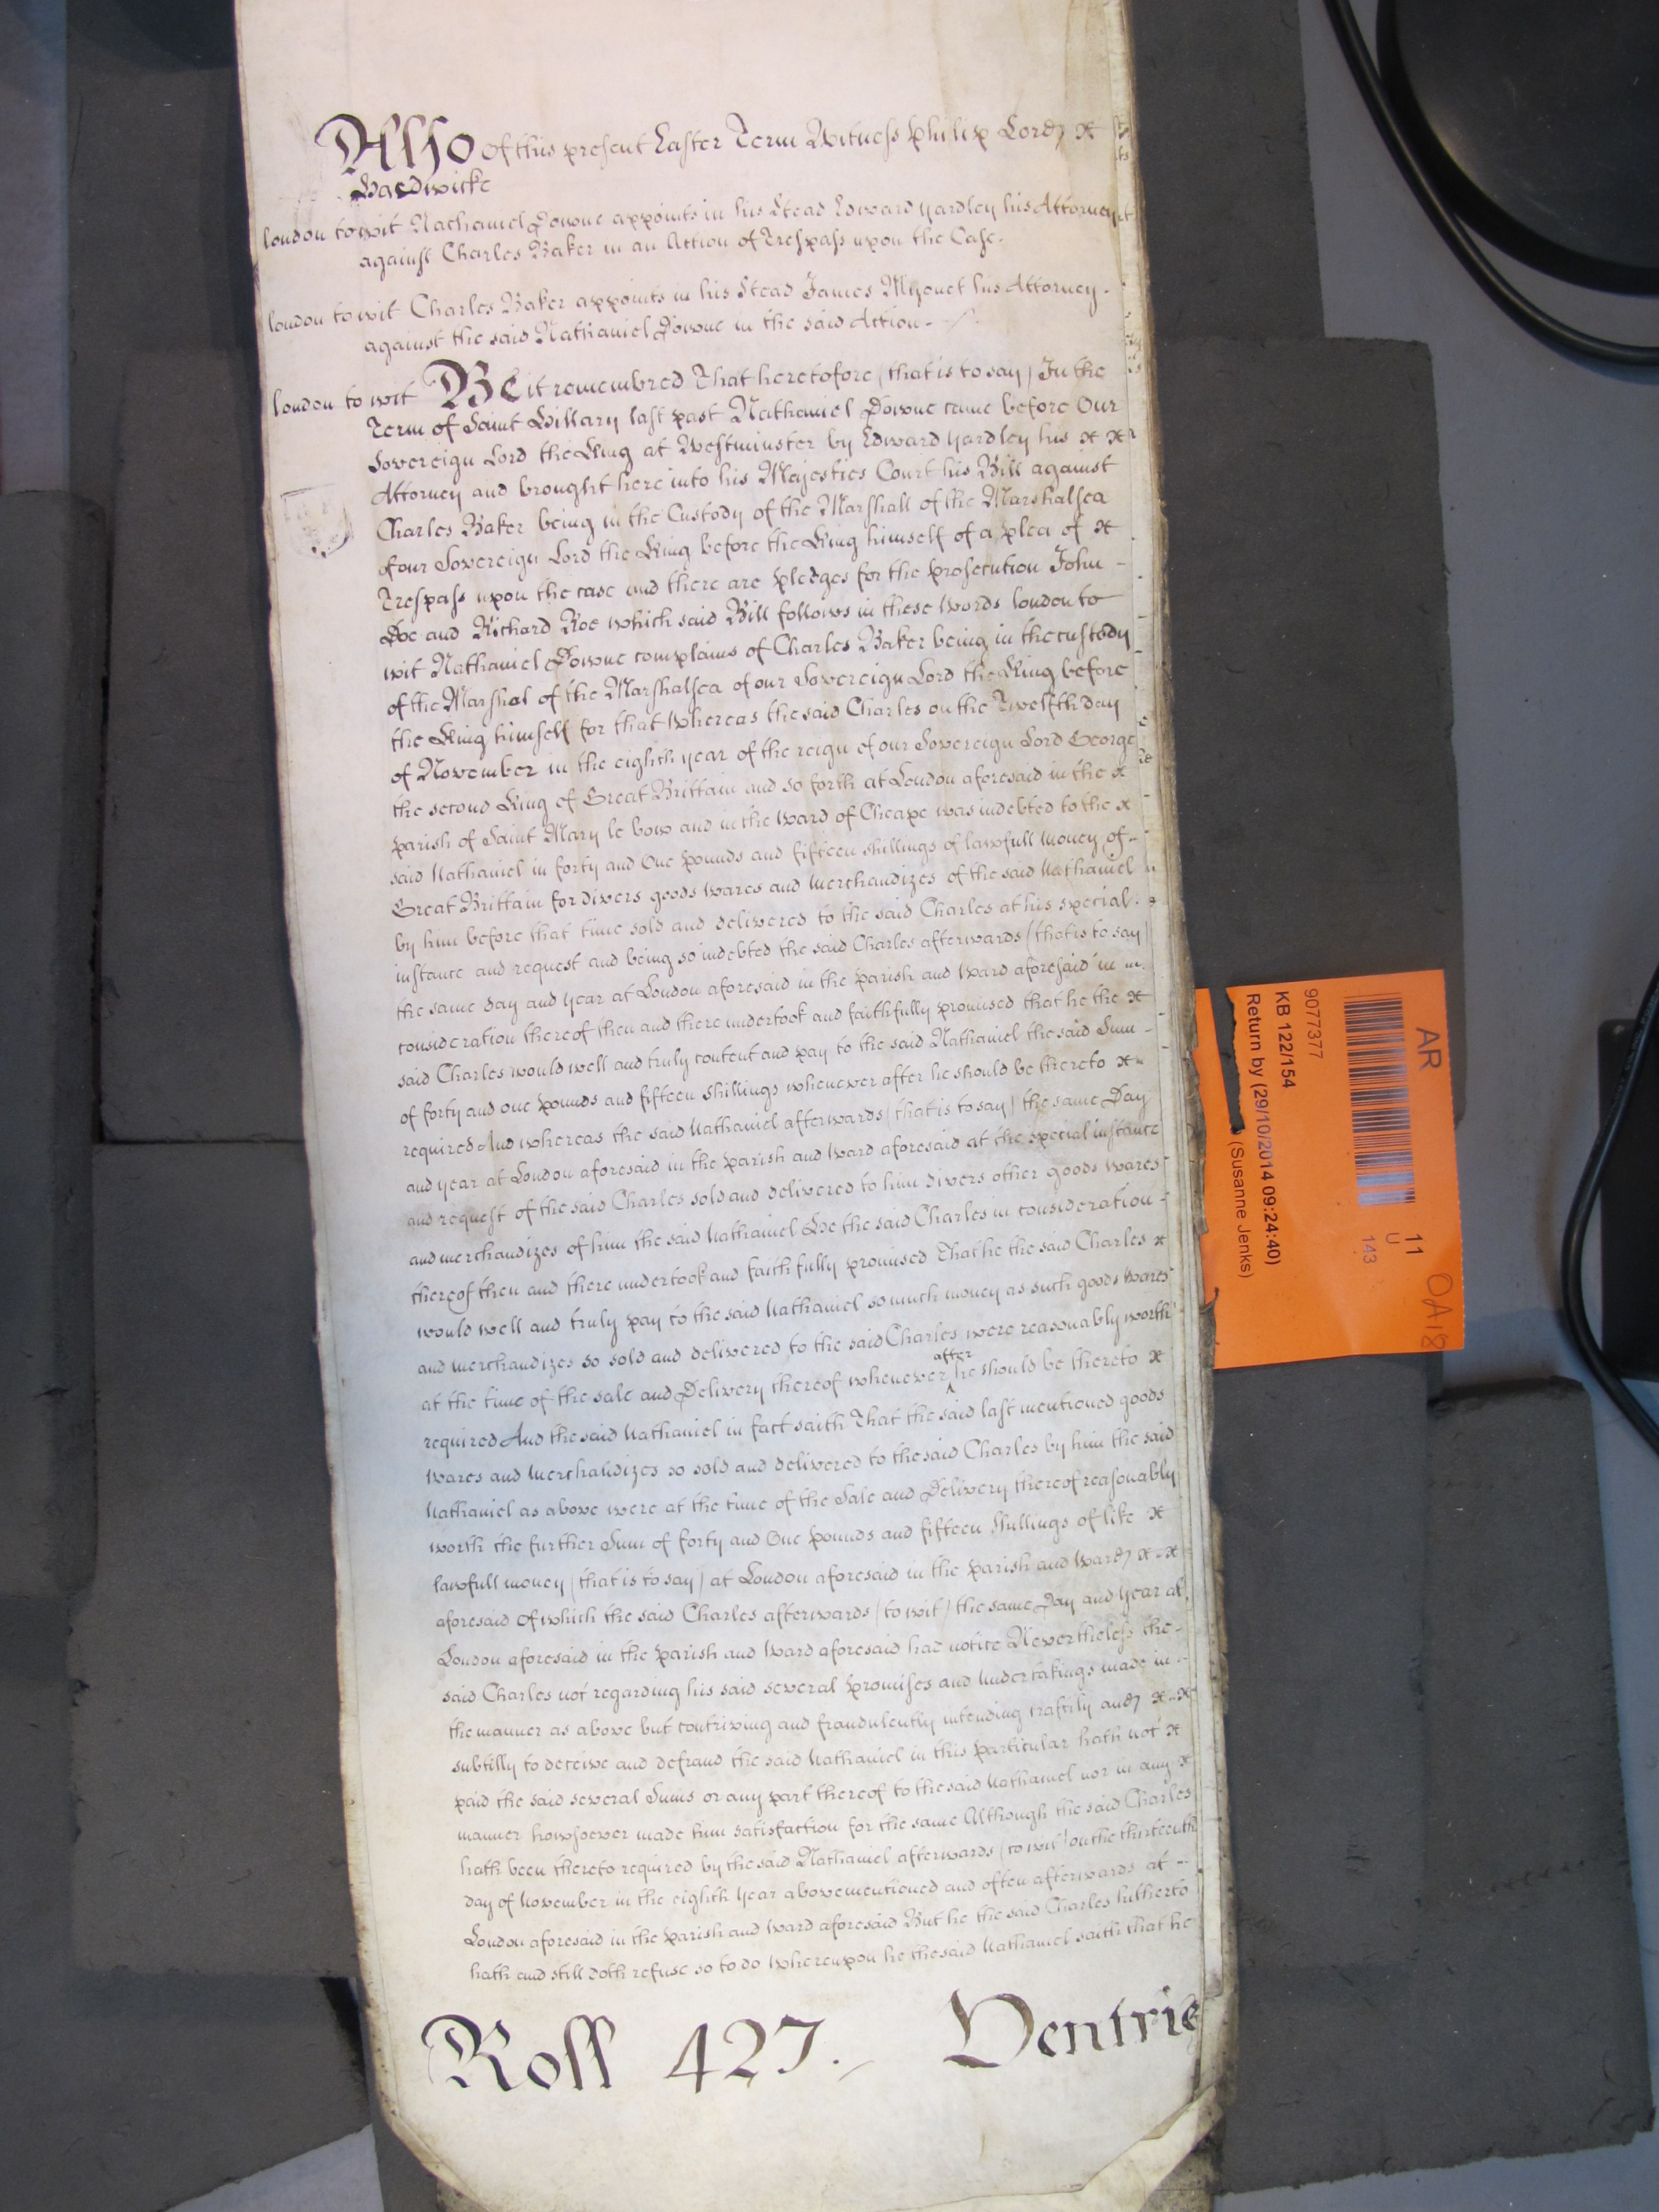 Also of this present Easter Term Witness Philip Lord
Hardwicke
London to wit Nathaniel Downe appoints in his Stead Edward Yardley his Attorney
against Charles Baker in an Action of Trespass upon the Case.
London to wit Charles Baker appoints in his Stead James Mizouet his Attorney.
against the said Nathaniel Downe in the said Action -
London to wit Be it remembred That heretofore (that is to say) In the
Term of Saint Hillary last past Nathaniel Downe came before Our
Sovereign Lord the King at Westminster by Edward Yardley his
Attorney and brought here into his Majesties Court his Bill against
Charles Baker being in the Custody of the Marshall of the Marshalsea
of our Sovereign Lord the King before the King himself of a plea of
Trespass upon the case and there are pledges for the prosecution John -
Doe and Richard Roe which said Bill follows in these Words London to
wit Nathaniel Downe complains of Charles Baker being in the custody
of the Marshal of the Marshalsea of our Sovereign Lord the King before
the King himself for that Whereas the said Charles on the Twelfth day
of November in the eighth year of the reign of our Sovereign Lord George
the second King of Great Brittain and so forth at London aforesaid in the
parish of Saint Mary le bow and in the Ward of Cheape was indebted to the
said Nathaniel in forty and One pounds and fifteen shillings of lawfull money of -
Great Brittain for divers goods wares and Merchandizes of the said Nathaniel
by him before that time sold and delivered to the said Charles at his special
instance and request and being so indebted the said Charles afterwards (that is to say)
the same day and year at London aforesaid in the parish and Ward aforesaid in
consideration thereof then and there undertook and faithfully promised that he the
said Charles would well and truly content and pay to the said Nathaniel the said Sum -
of forty and one pounds and fifteen shillings whenever after he should be thereto
required And whereas the said Nathaniel afterwards (that is to say) the same Day
and year at London aforesaid in the parish and Ward aforesaid at the special instance
and request of the said Charles sold and delivered to him divers other goods wares
and merchandizes of him the said Nathaniel He the said Charles in consideration -
thereof then and there undertook and faithfully promised That he the said Charles
would well and truly pay to the said Nathaniel so much money as such goods Wares
and Merchandizes so sold and delivered to the said Charles were reasonably worth
at the time of the sale and Delivery thereof whenever after he should be thereto
required And the said Nathaniel in fact saith That the said last mentioned goods
Wares and Merchandizes so sold and delivered to the said Charles by him the said
Nathaniel as above were at the time of the Sale and Delivery thereof reasonably
worth the further Sum of forty and One pounds and fifteen Shillings of like
lawfull money (that is to say) at London aforesaid in the parish and Ward
aforesaid Of which the said Charles afterwards (to wit) the same Day and year at
London aforesaid in the parish and Ward aforesaid had notice Nevertheless the -
said Charles not regarding his said several promises and Undertakings made in -
the manner as above but contriving and fraudulently intending craftily and
subtilly to deceive and defraud the said Nathaniel in this particular hath not
paid the said several Sums or any part thereof to the said Nathaniel nor in any
manner howsoever made him satisfaction for the same Although the said Charles
hath been thereto required by the said Nathaniel afterwards (to wit) on the thirteenth
day of November in the eighth Year abovementioned and often afterwards at -
London aforesaid in the parish and Ward aforesaid But he the said Charles hitherto
hath and still doth refuse so to do Whereupon he the said Nathaniel saith that he
Roll 427. Ventris
AR
11
U
143
OA18
9077377
KB 122/154
Return by (29/10/2014 09:24:40)
(Susanne Jenks)